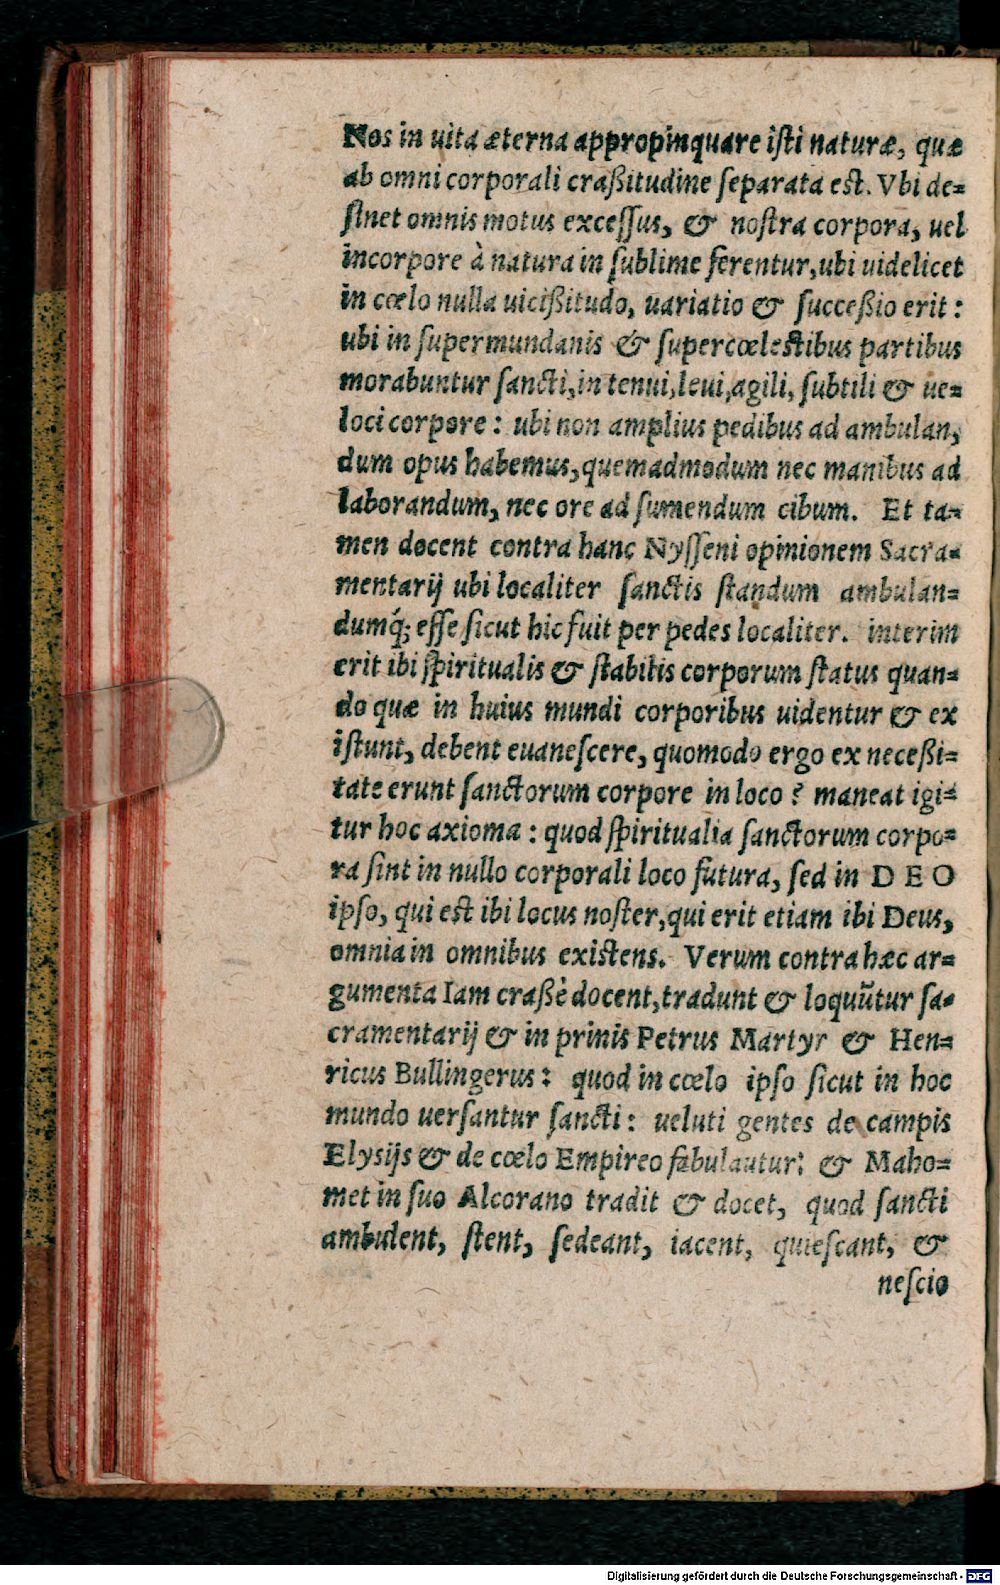 Nos in uita æterna appropinquare iſti naturæ, quæ
ab omni corporali craßitudine ſeparata eſt. Vbi de=
ſinet omnis motus exceſſus, & noſtra corpora, uel
incorpore à natura in ſublime ferentur, ubi uidelicet
in cœlo nulla uicißitudo, uariatio & ſucceßio erit:
ubi in ſupermundanis & ſupercœleſtibus partibus
morabuntur ſancti, in tenui, leui, agili, ſubtili & ue=
loci corpore: ubi non amplius pedibus ad ambulan,
dum opus habemus, quemadmodum nec manibus ad
laborandum, nec ore ad ſumendum cibum. Et ta=
men docent contra hanc Nyſſeni opinionem Sacra=
mentarij ubi localiter ſanctis ſtandum ambulan=
dumq́; eſſe ſicut hic fuit per pedes localiter. interim
erit ibi ſpiritualis & ſtabilis corporum ſtatus quan=
do quæ in huius mundi corporibus uidentur & ex
iſtunt, debent euaneſcere, quomodo ergo ex neceßi=
tate erunt ſanctorum corpore in loco? maneat igi=
tur hoc axioma: quod ſpiritualia ſanctorum corpo=
ra ſint in nullo corporali loco futura, ſed in DEO
ipſo, qui eſt ibi locus noſter, qui erit etiam ibi Deus,
omnia in omnibus exiſtens. Verum contra hæc ar=
gumenta Iam craßè docent, tradunt & loquũtur ſa=
cramentarij & in prinis Petrus Martyr & Hen=
ricus Bullingerus: quod in cœlo ipſo ſicut in hoc
mundo uerſantur ſancti: ueluti gentes de campis
Elysijs & de cœlo Empireo fabulautur: & Maho=
met in ſuo Alcorano tradit & docet, quod ſancti
ambulent, ſtent, ſedeant, iacent, quieſcant, &
neſcio
Digitalisierung gefördert durch die Deutsche Forschungsgemeinschaft - DFG